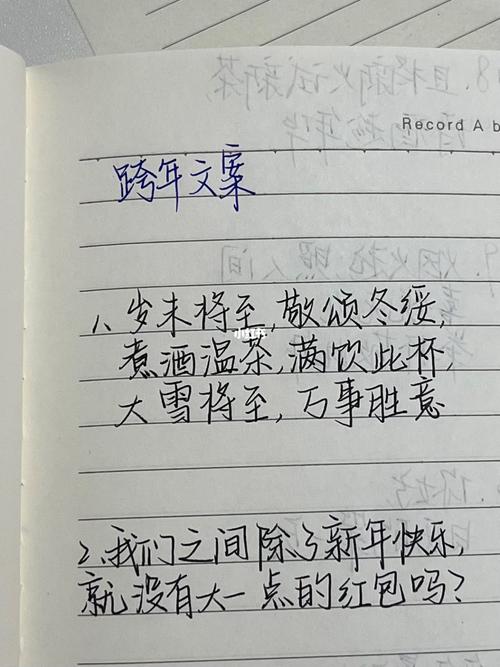 8.且将新火试新茶
Record A b
跨年文案
1、岁末将至,敬颂冬绥,
小红书
煮酒温茶,满饮此杯,
大雪将至,万事胜意
2、我们之间除了新年快乐,
就没有大一点的红包吗?